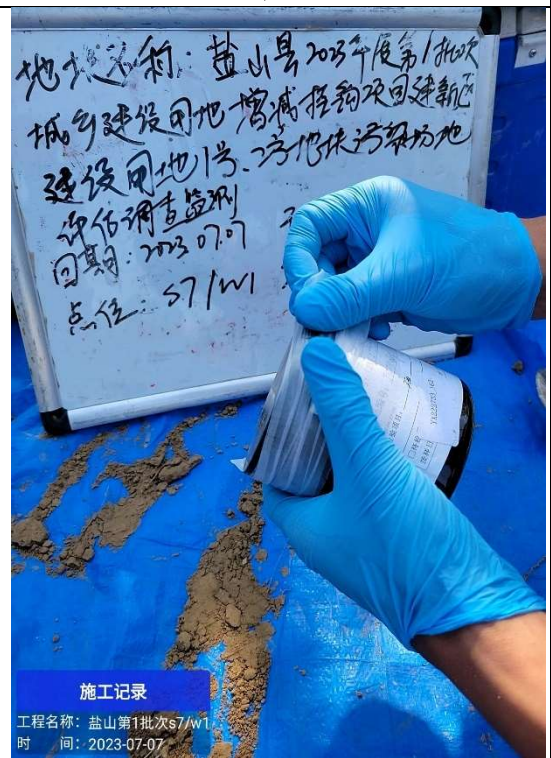 地块名称：盐山县2023年度第1批次
城乡建设用地增减挂钩项目建新区
建设用地1号、2号地块污染场地
评估调查监测
日期：2023 07.07
点位：S7/W1
施工记录
工程名称：盐山第1批次s7/w1
时　间：2023-07-07